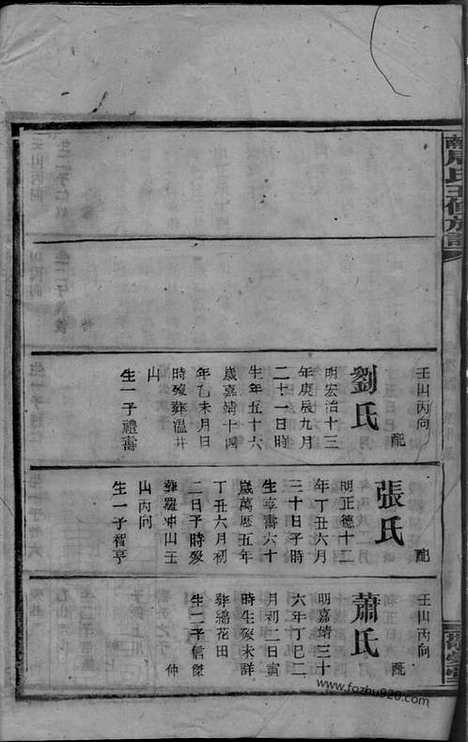 壬山丙向
配
劉氏
明宏治十三
年庚辰九月
二十一日時
生年五十六
歲嘉靖十四
年乙未月日
時歿葬溫井
山
生一子禮壽
配
張氏
明正德十二
年丁丑六月
三十日子時
生年壽六十
歲萬歷五年
丁丑六月初
二日子時歿
葬羅冲山壬
山丙向
生一子智亨
壬山丙向
配
蕭氏
明嘉靖三十
六年丁巳二
月初二日寅
時生歿未詳
葬綿花田
生二子信傑
仲
www.fozhu920.com